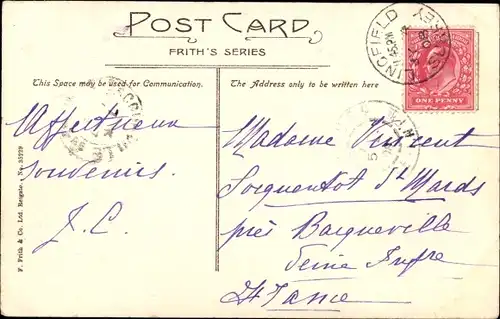 POST CARD
FRITH'S SERIES
This Space may be used for Communication.
The Address only to be written here
LINGFIELD
ONE PENNY
Affectueux
souvenirs
J. C.
Madame Vincent
près Bacqueville
Seine Infre
France
F. Frith & Co. Ltd. Reigate. No. 53229